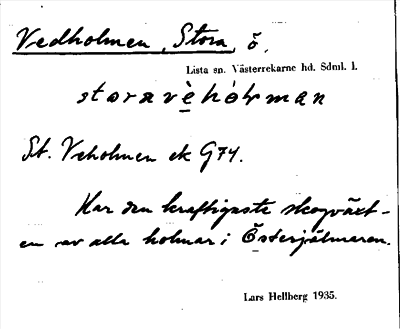 Vedholmen, Stora, ö.
Lista sn. Västerrekarne hd. Sdml. l.
storavèhòɫman
St. Veholmen ek G74.
Har den kraftigaste skogväxt-
en av alla holmar i Österjälmaren.
Lars Hellberg 1935.